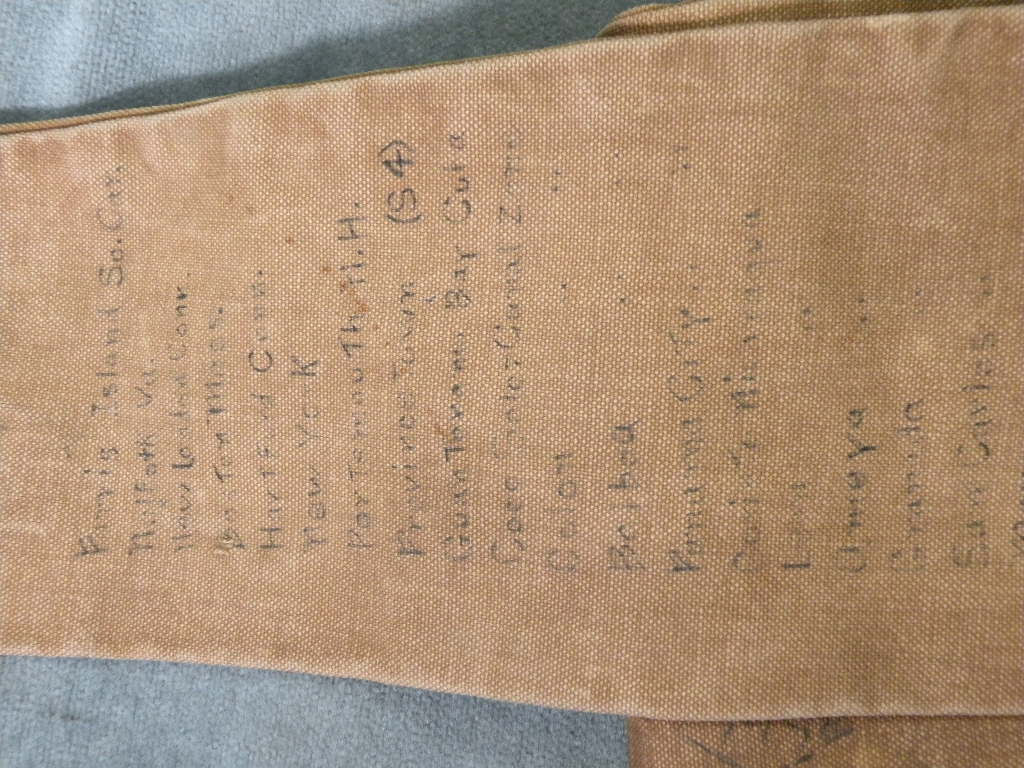 Parris Island So. Car.
Norfolk Va.
New London Conn.
Boston Mass.
Hartford Conn.
New York
Portsmouth N.H.
Provincetown (S4)
Guantanamo Bay Cuba
Coco Solo - Canal Zone
Colon " "
Balboa " "
Panama City " "
Corinto Nicaragua
Leon "
Granada "
San Carlos "